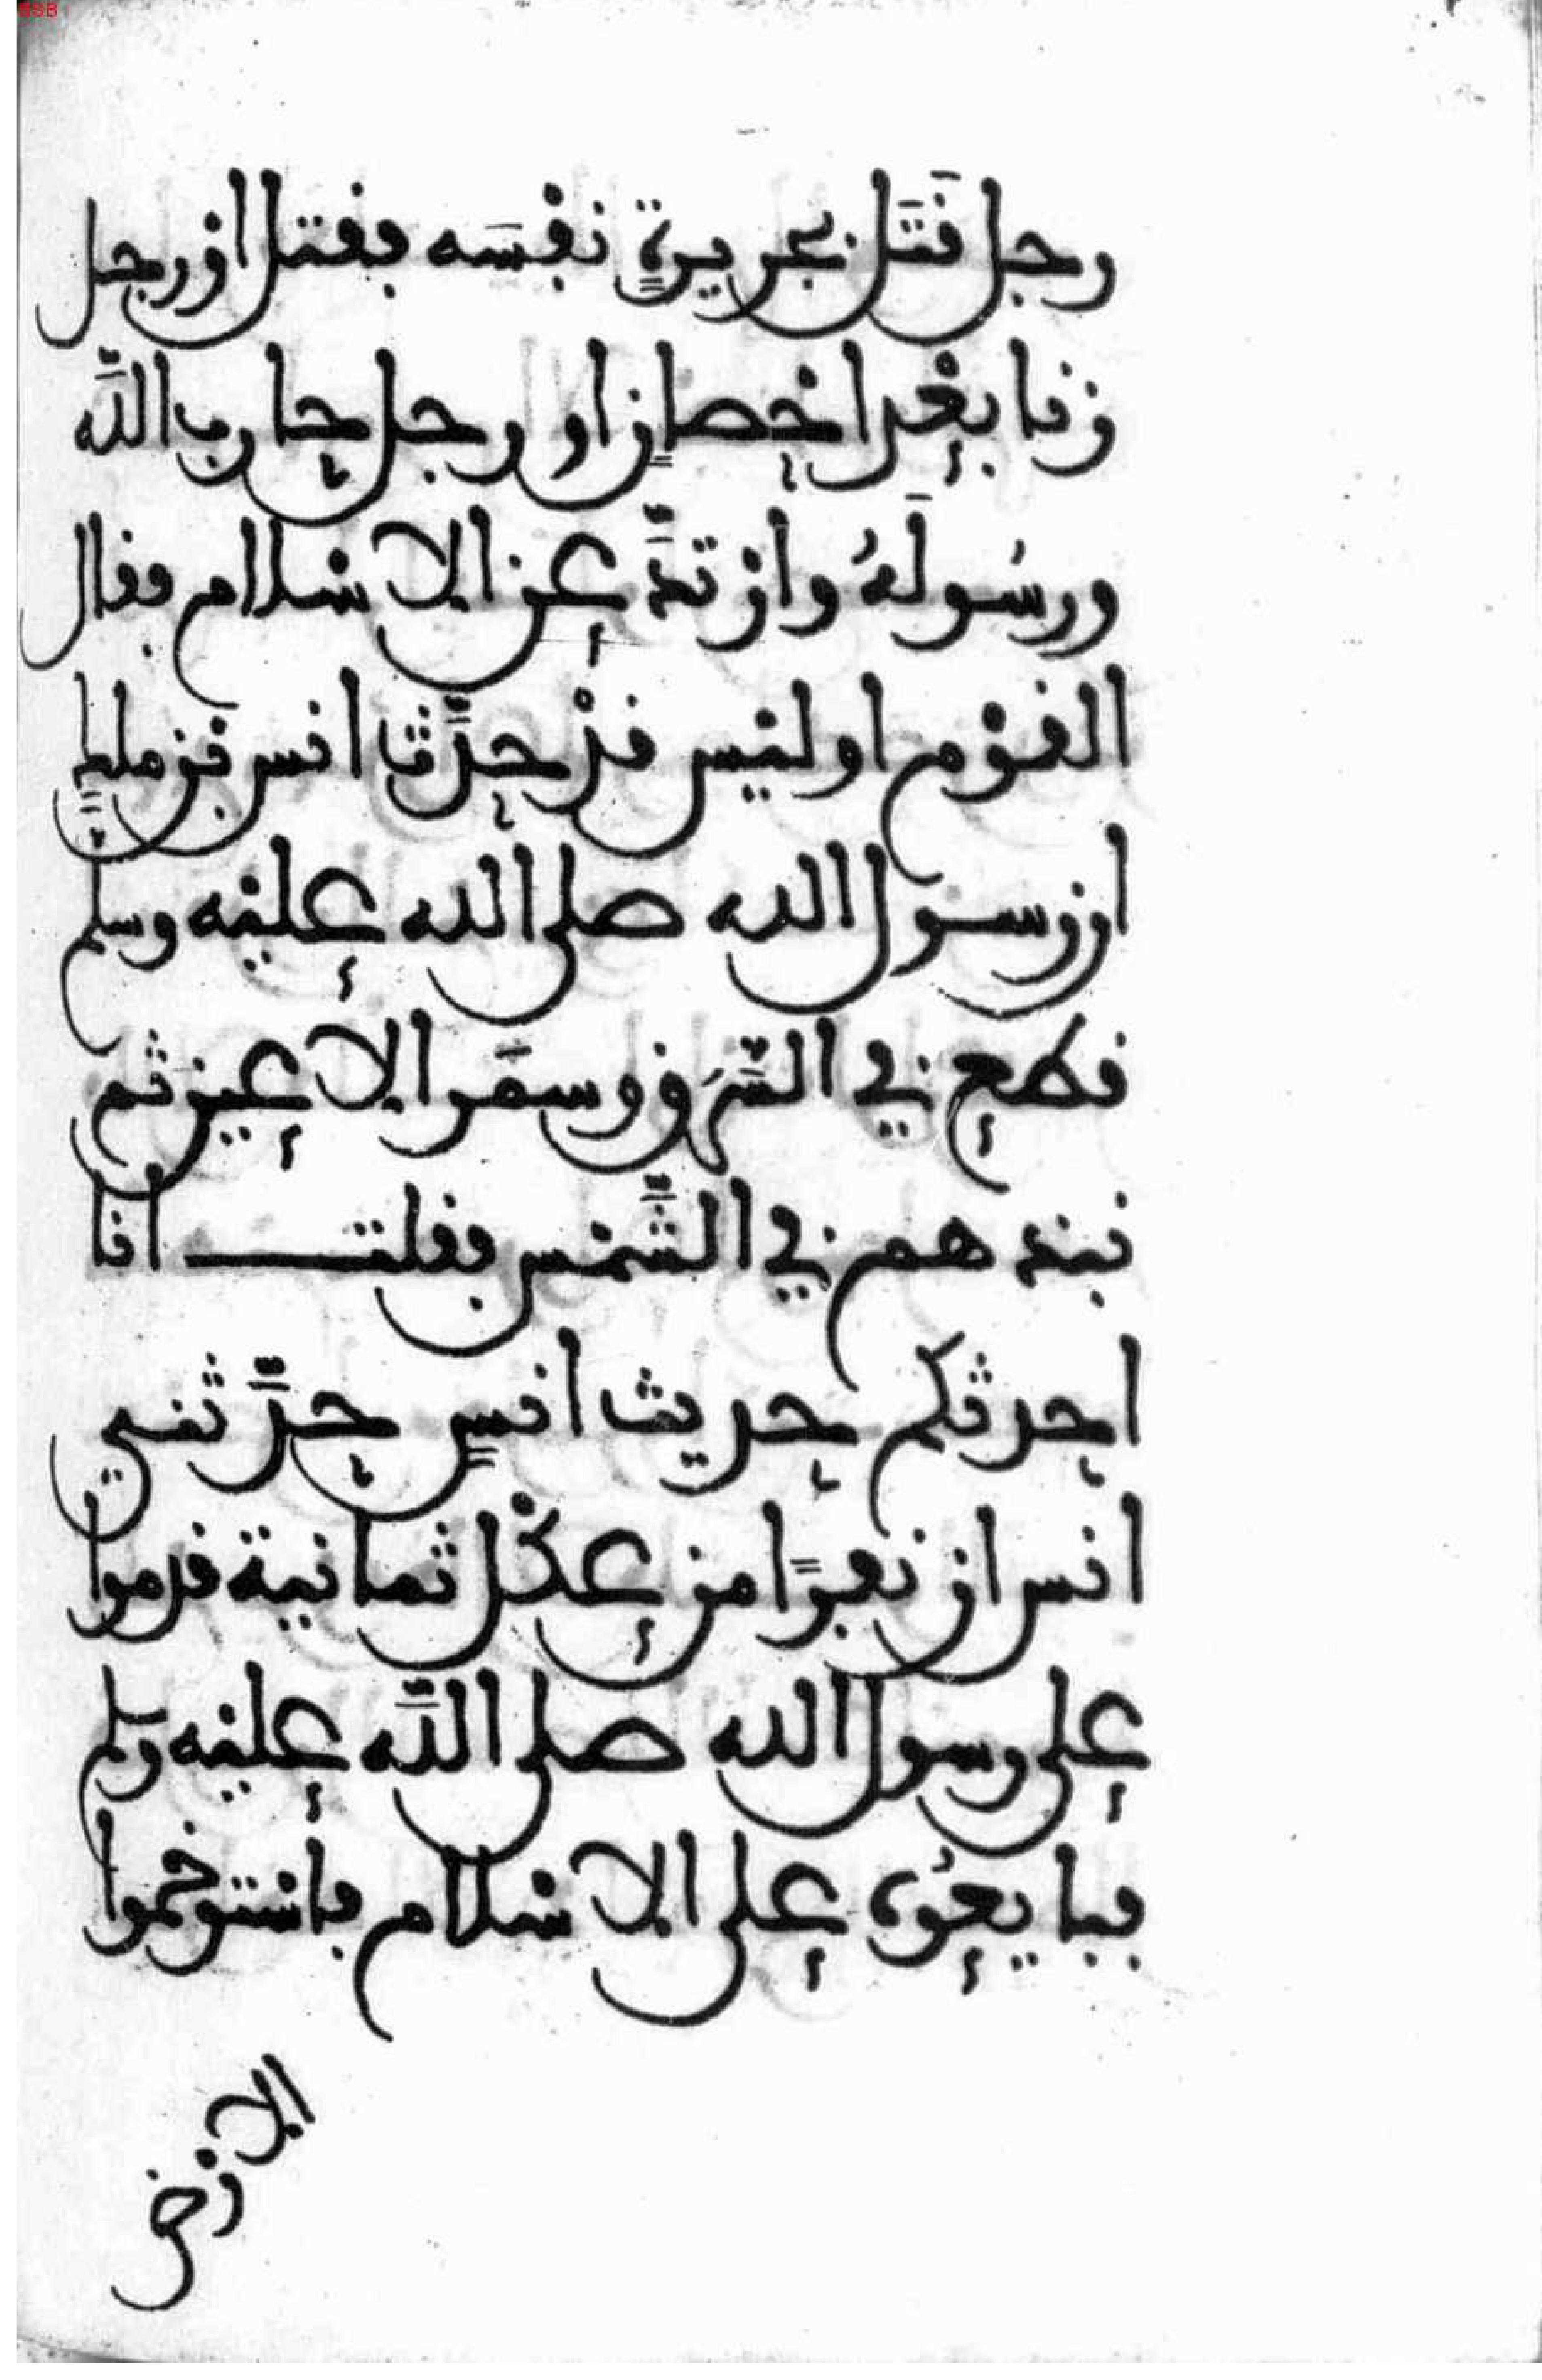 رجل قَتَل بجريرةٍ نفْسَه فقتل اوْ رجل
زنا بعْد احْصانٍ او رجل حارب اللَّه
ورسُولَهُ وارْتدَّ عن الاسْلام فقال
القوْم اوليْس قدْ حدَّث انس بْن ملكٍ
ان رسول الله صلى الله عليْه وسلم
قطع في السَّرَق وسمَر الاعين ثم
نبذهم في الشَّمْس فقلت انا
احدثكم حديث انسٍ حدَّثني
انس ان نفرًا من عكْل ثمانية قدموا
على رسول الله صلى اللَّه عليْه وسلم
فبايعُوه على الاسْلام فاسْتوخموا
الارْض